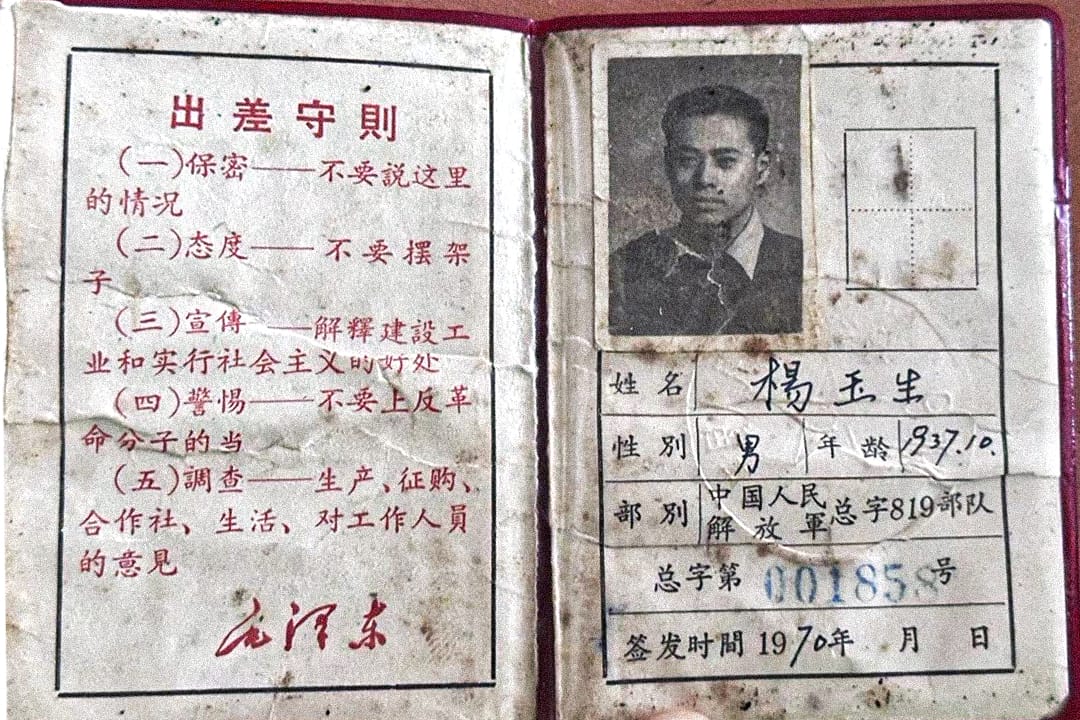 出差守則
(一)保密——不要説这里
的情况
(二)态度——不要摆架
子
(三)宣傳——解釋建設工
业和实行社会主义的好处
(四)警惕——不要上反革
命分子的当
(五)調查——生产、征购、
合作社、生活、对工作人員
的意見
毛泽东
姓名 楊玉生
性別 男 年龄 1937.10.
部別 中国人民解放軍总字819部队
总字第 001858号
签发时間 1970年 月 日